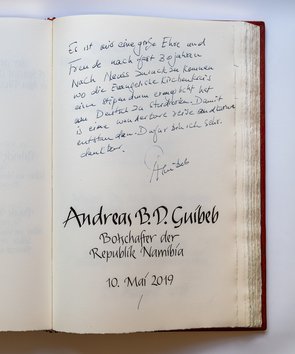 Es ist mir eine große Ehre und
Freude nach fast 30 Jahren
nach Neuss zurück zu kommen
wo die Evangelische Kirchenkreis
eine Stipendium ermöglicht hat
um Deutsch zu studieren. Damit
ist eine wunderbare
entstanden. Dafür bin ich sehr
dankbar.
Andreas B.D. Guibeb
Botschafter der
Republik Namibia
10. Mai 2019